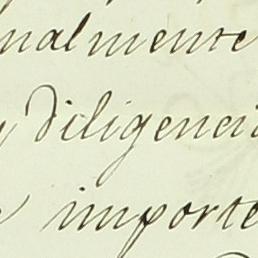 nalmente
y diligencia
importe